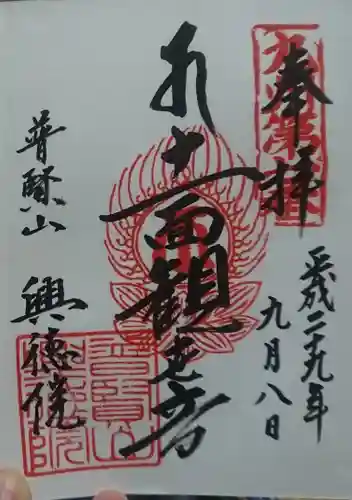 奉拝
平成二十九年
九月八日
十一面観世音
普賢山
興徳院
普賢山
興徳院